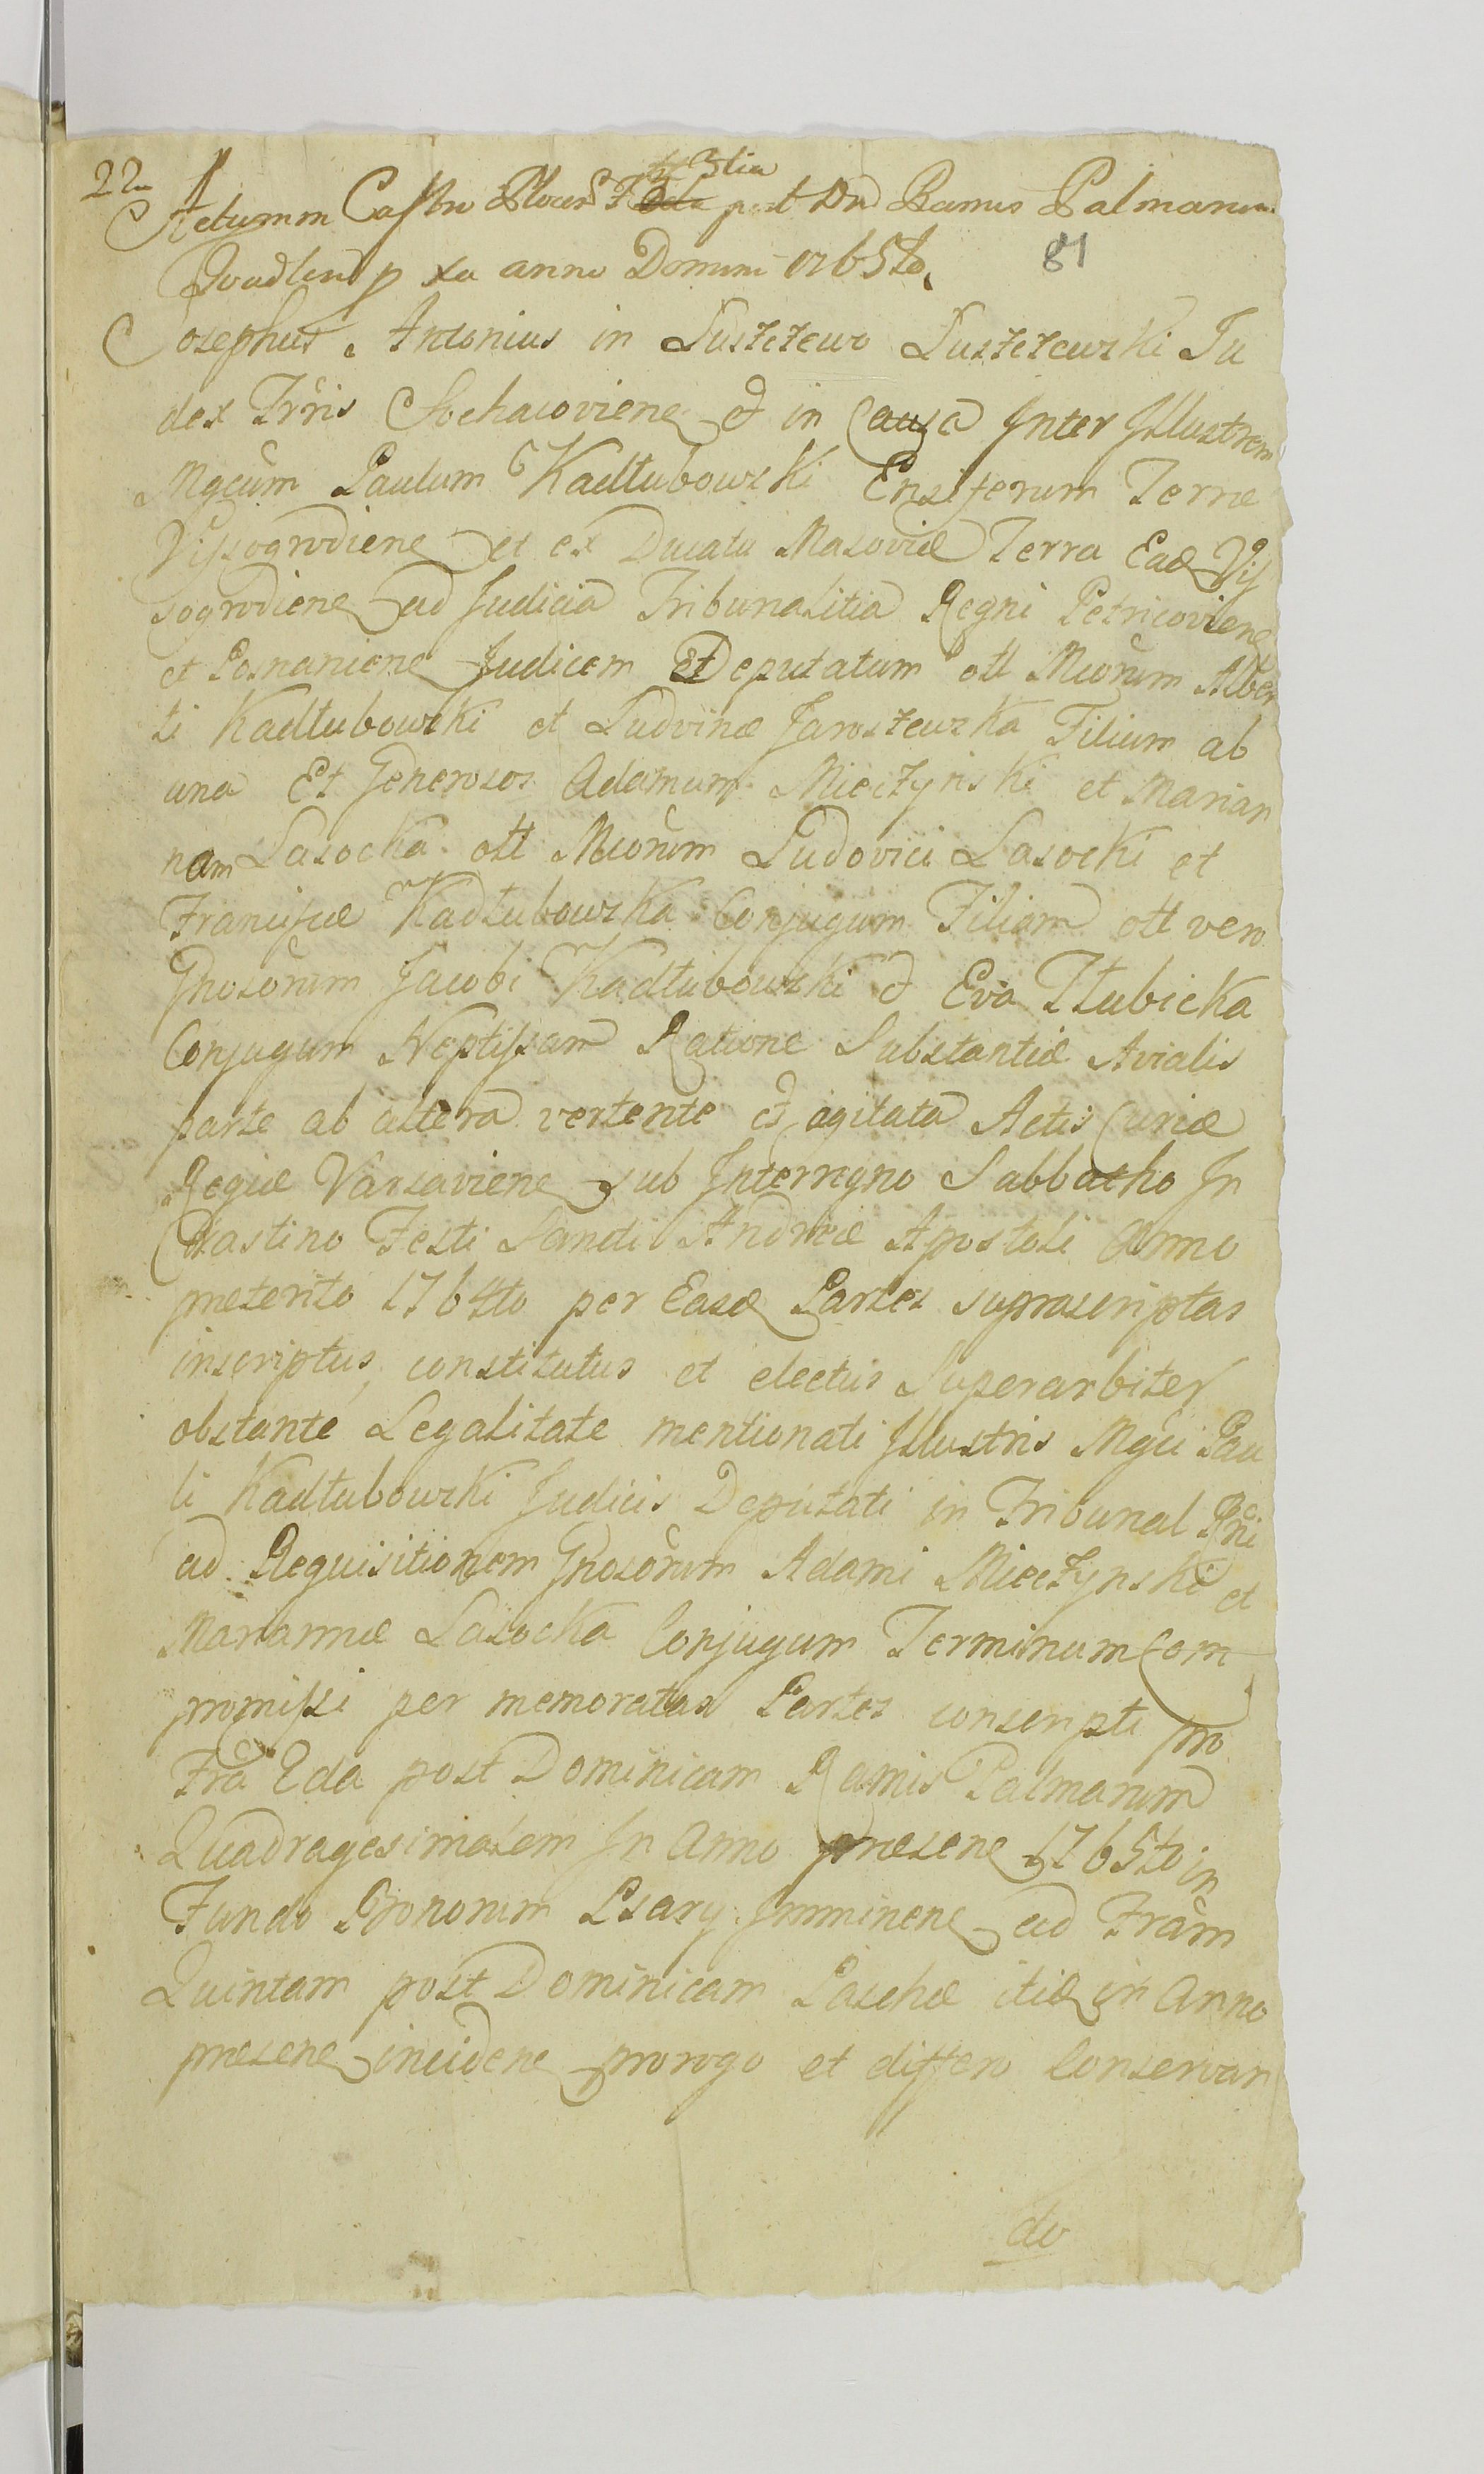 22
Actum in Castro Plocen 3tia post Dnd Ramis Palmarum
81
Quadlem p xa anno Domini 1765to
Josephus Antonius in Luszczewo Luszczewski Ju
dex Trris Sochacoviene et in Causa Inter Illustrem
Mgcum Paulum Kadłubowski Ensiferum Terræ
Vissogrodiene et ex Ducatu Masoviæ Terra Ead Vis
sogrodiene ad Judicia Tribunalitia Regni Petricoviene
et Posnaniene Judicem Et Deputatum olt Mcorum Alber
ti Kadłubowski et Ludvinæ Jaroszewska Filium ab
una Et Generosos Adamum Mieczynski et Marian
nam Lasocka olt Mcorum Ludovici Lasocki et
Franciscæ Kadłubowska Conjugum Filiam olt vero
Gnosorum Jacobi Kadłubowski et Eva Złubicka
Conjugum Neptissam Ratione Substantiæ Avialis
parte ab altera vertente et agitata Actis Curiæ
Regiæ Varsaviene sub Interregno Sabbatho In
Crastino Festi Sancti Andreæ Apostoli Anno
preterito 1764to per Easd Partes suprascriptas
inscriptus, constitutus et electus Superarbiter
obstante Legalitate mentionati Illustris Mgci Pau
li Kadłubowski Judicis Deputati in Tribunal Rni
ad Requisitionem Gnosorum Adami Mieczynski et
Mariannæ Lasocka Conjugum Terminum Com
promissi per memoratas Partes conscripti pro
Fra 2da post Dominicam Ramis Palmarum
Quadragesimalem In Anno presene 1765to in
Fundo Bonorum Psary Imminene ad Fram
Quintam post Dominicam Paschæ itid in Anno
presene incidene prorogo et differo Conservan
do